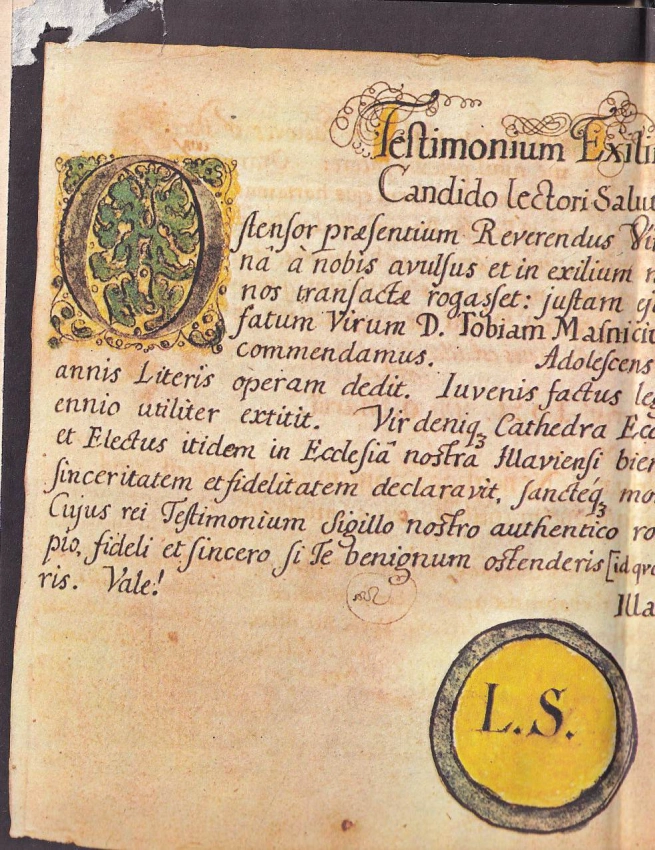 Testimonium Exilii
Candido lectori Salut
Ostensor præsentium Reverendus Vir
nâ à nobis avulsus et in exilium
nos transactæ rogasset: justam ej
fatum Virum D. Tobiam Masniciu
commendamus. Adolescens
annis Literis operam dedit. Iuvenis factus le
ennio utiliter extitit. Vir deniqꝫ Cathedra Ecc
et Electus itidem in Ecclesiâ nostrâ Illaviensi bien
sinceritatem et fidelitatem declaravit, sanctéqꝫ mo
Cujus rei Testimonium Sigillo nostro authentico ro
pio, fideli et sincero si Te benignum ostenderis [id qvo
ris. Vale!
Illa
L.S.